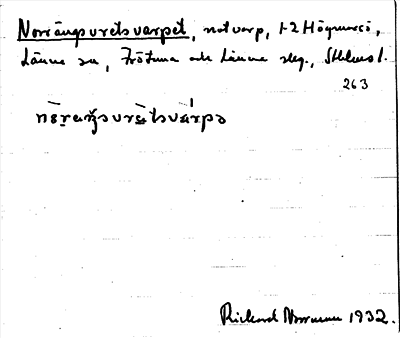 Norrängsvretsvarpet, notvarp, 1-2 Högmarsö,
Länna sn, Frötuna och Länna slg., Sthlms l.
263
Rickard Norrman 1932.